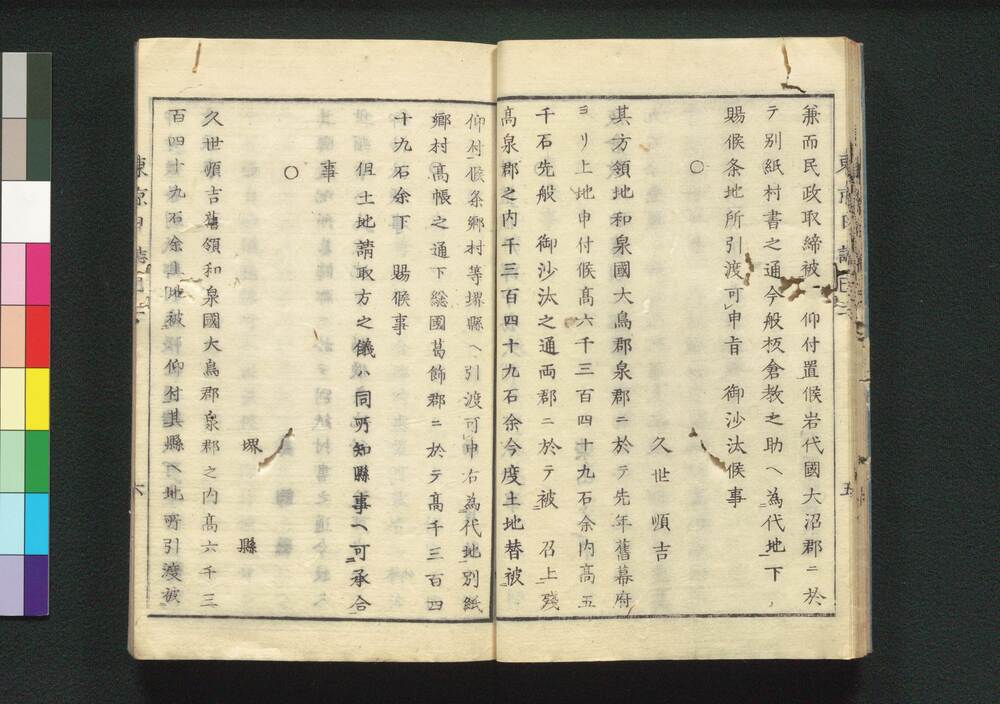 兼而民政取締被　仰付置候岩代國大沼郡ニ於
テ別紙村書之通今般板倉教之助ヘ為代地下
賜候条地所引渡可申旨　御沙汰候事
○
久世　順吉
其方領地和泉國大鳥郡泉郡ニ於テ先年舊幕府
ヨリ上地申付候髙六千三百四十九石余内髙五
千石先般　御沙汰之通両郡ニ於テ被　召上残
髙泉郡之内千三百四十九石余今度土地替被
仰付候条郷村等堺縣ヘ引渡可申右為代地別紙
郷村髙帳之通下総國葛飾郡ニ於テ髙千三百四
十九石余下　賜候事
但土地請取方之儀ハ同所知縣事ヘ可承合
事
○
堺　縣
久世順吉舊領和泉國大鳥郡泉郡之内髙六千三
百四十九石余上地被　仰付其縣ヘ地所引渡被
東京日誌
五
東京日誌
六